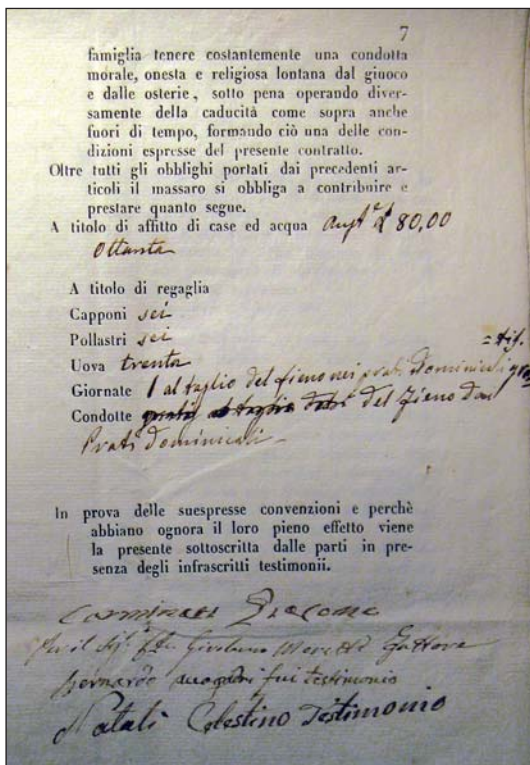 7
famiglia tenere costantemente una condotta
morale, onesta e religiosa lontana dal giuoco
e dalle osterie, sotto pena operando diver-
samente della caducità come sopra anche
fuori di tempo, formando ciò una delle con-
dizioni espresse del presente contratto.
Oltre tutti gli obblighi portati dai precedenti ar-
ticoli il massaro si obbliga a contribuire e
prestare quanto segue.
A titolo di affitto di case ed acqua 80,00
Ottanta
A titolo di regaglia
Capponi sei
Pollastri sei
Uova trenta
Giornate 1 al taglio del fieno nei prati Dominicali
Condotte del fieno dai
Prati Dominicali
In prova delle suespresse convenzioni e perchè
abbiano ognora il loro pieno effetto viene
la presente sottoscritta dalle parti in pre-
senza degli infrascritti testimonii.
Carminati Giacomo
Per il Sig.
Bernardo fui testimonio
Natali Celestino Testimonio